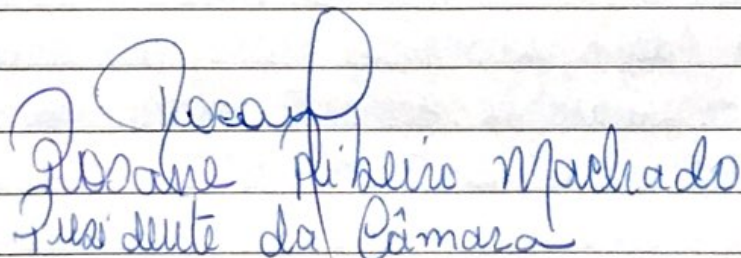 Rosane
Rosane Ribeiro Machado
Presidente da Câmara